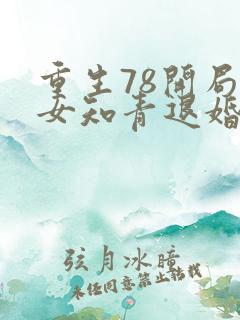 重生78开局
女知青退婚
弦月冰暗
未经同意禁止转载